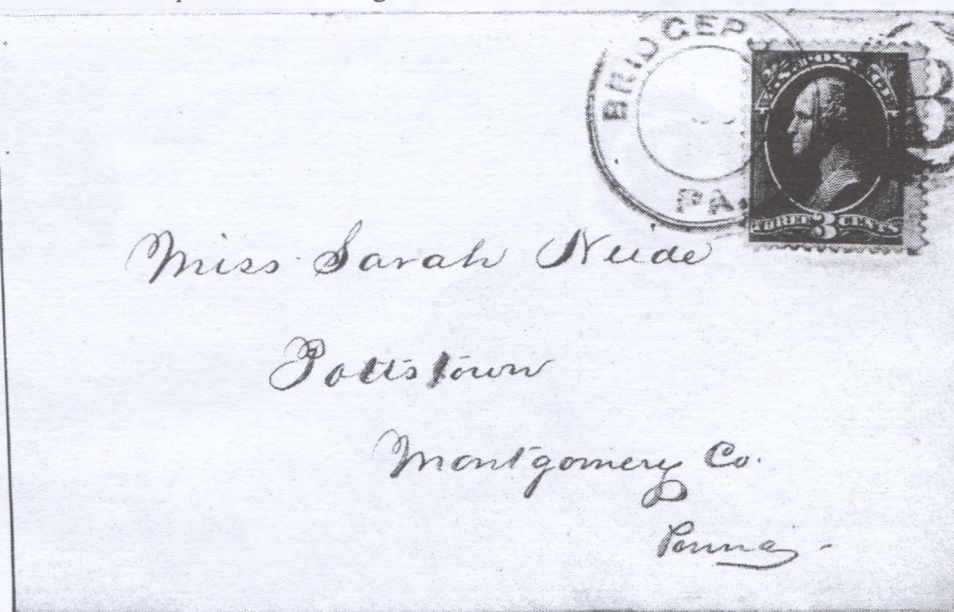 BRIDGEP
PA.
U.S. POSTAGE
THREE 3 CENTS
Miss Sarah Neide
Pottstown
Montgomery Co.
Penna